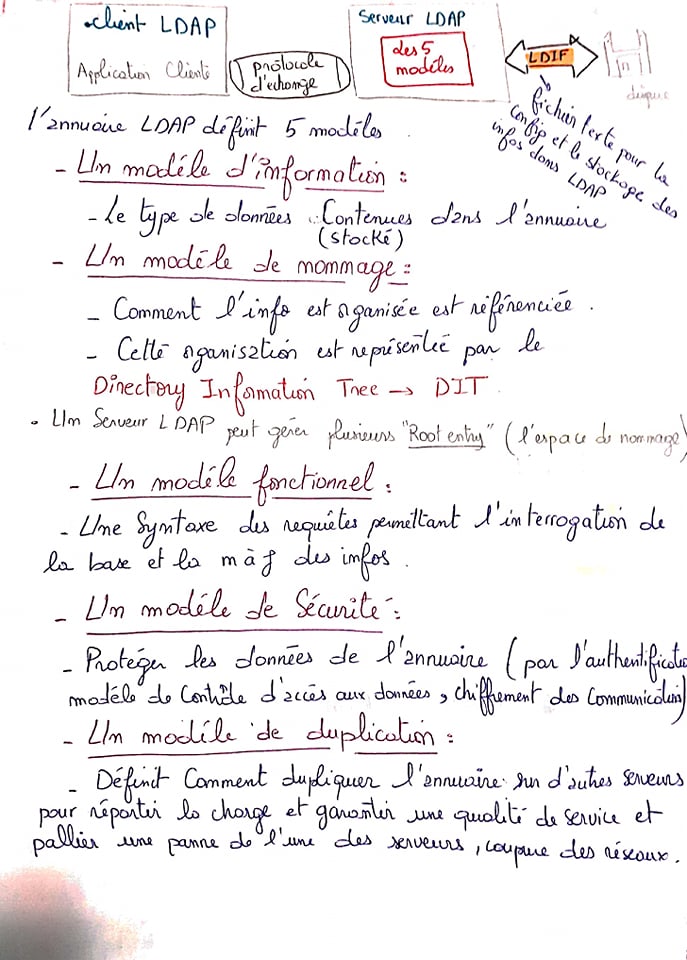 .client LDAP
Application Cliente
protocole
d'echange
Serveur LDAP
Les 5
modèles
LDIF
disque
fichier texte pour la
config et le stockage des
infos dans LDAP
l'annuaire LDAP définit 5 modèles.
- Un modèle d'information :
- Le type de données Contenues dans l'annuaire
(stocké)
- Un modèle de nommage :
- Comment l'info est organisée est référenciée.
- Cette organisation est représentée par le
Directory Information Tree → DIT.
. Un Serveur LDAP peut gérer plusieurs "Root entry" (l'espace de nommage)
- Un modèle fonctionnel :
- Une Syntaxe des requêtes permettant l'interrogation de
la base et la m à j des infos.
- Un modèle de Sécurité :
- Protéger les données de l'annuaire (par l'authentificatio
modèle de Contrôle d'accès aux données, chiffrement des Communication)
- Un modèle de duplication :
- Définit Comment dupliquer l'annuaire sur d'autres serveurs
pour répartir la charge et garantir une qualité de service et
pallier une panne de l'une des serveurs, coupure des réseaux.